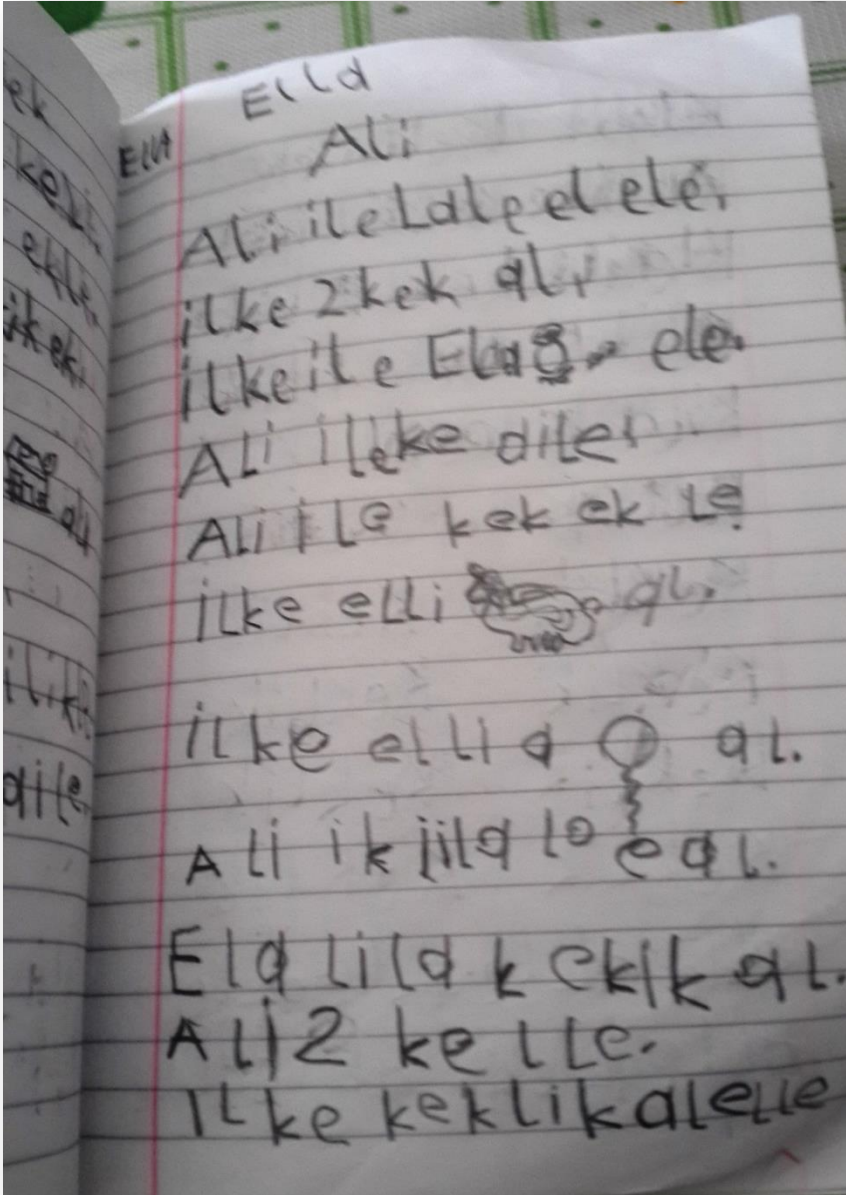 ek
keli.
ekle.
ik ek.
al
ilik
aile.
Ella
ElLA
Ali
Ali ile Lale el ele.
ilke 2 kek al.
ilke ile Ela ele.
Ali ileke aile
Ali ile kek ek le
ilke elli al.
ilke elli a al.
Ali ik lila lo e al.
Ela lila k eklk al.
Ali 2 ke lle.
ilke keklik al elle